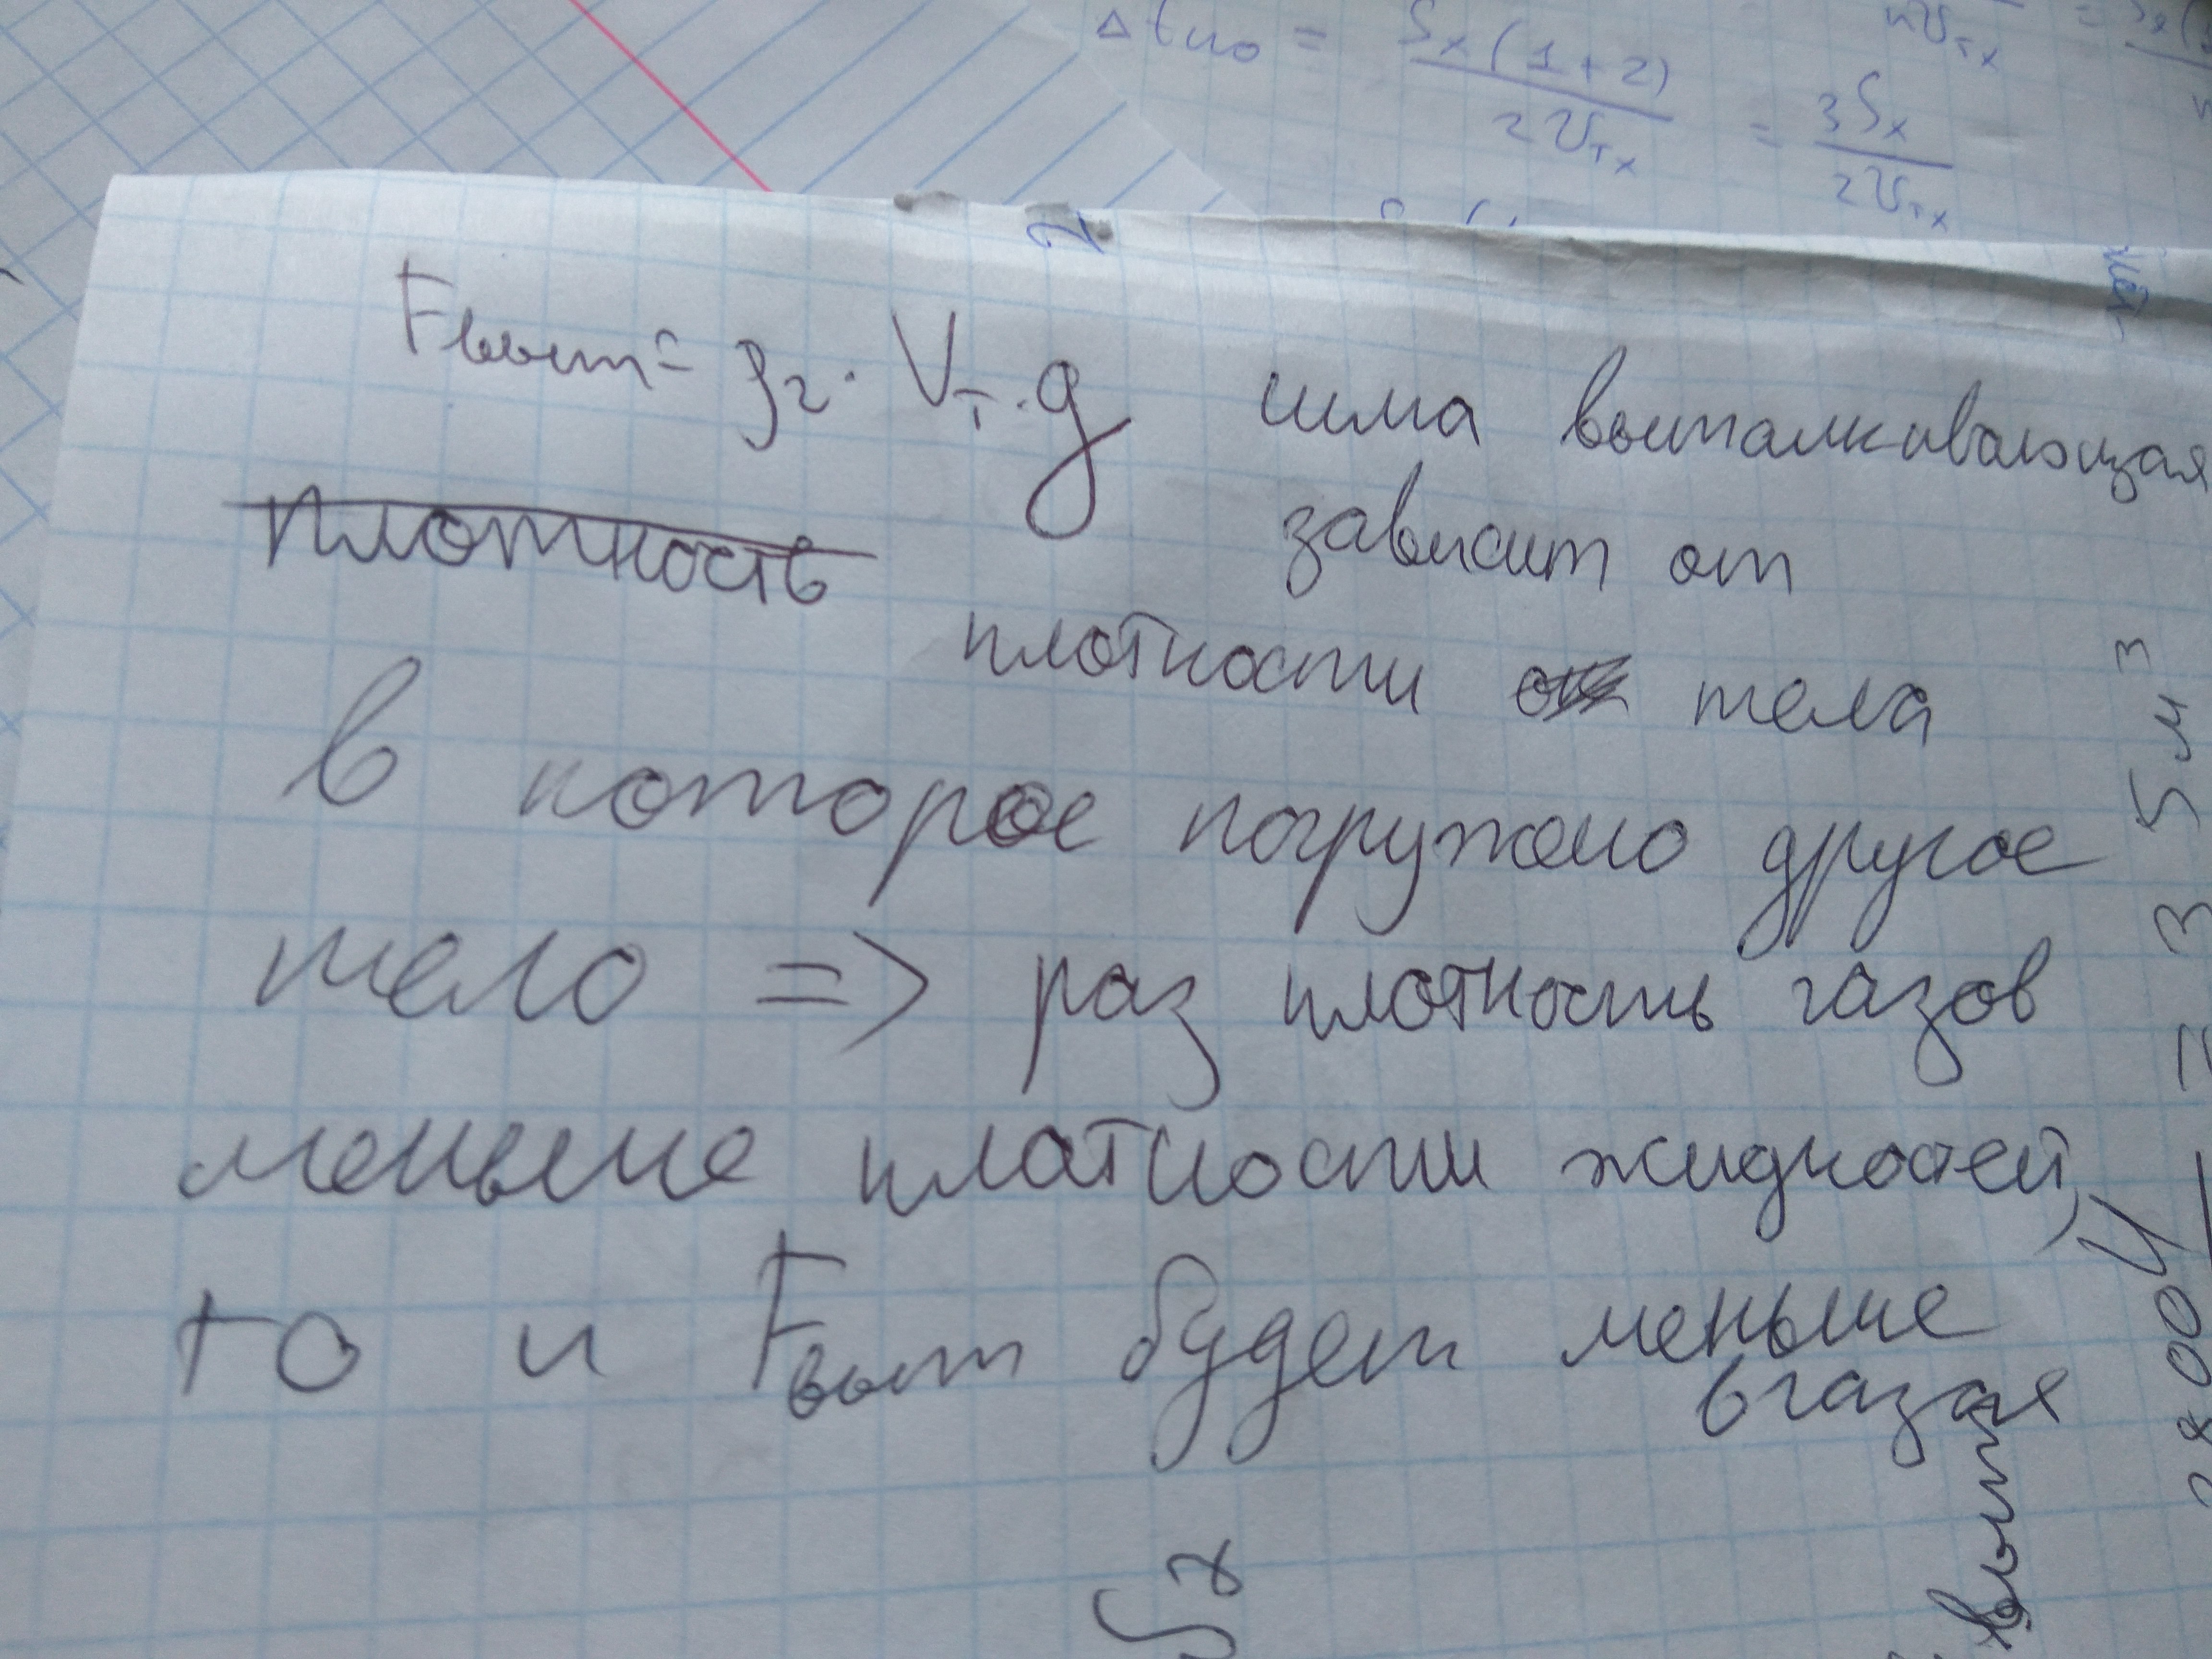 Δtно = Sx(1+2) / 2υтx = 3Sx / 2υтx
Fвыт = ρг · Vт · g сила выталкивающая
зависит от
плотность
плотности тела
в которое погружено другое
тело => раз плотность газов
меньше плотности жидкостей,
то и Fвыт будет меньше
в газах
5 м³